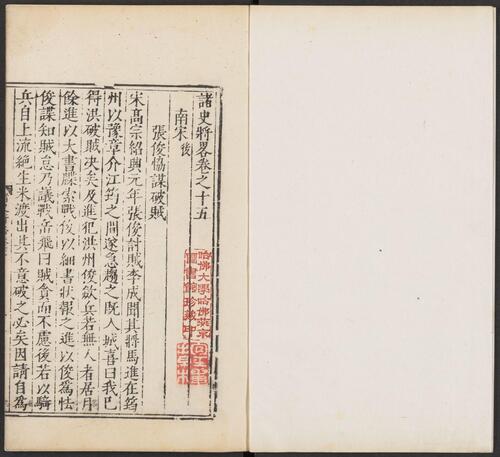 諸史將畧卷之十五
南宋後
張俊協謀破賊
宋高宗紹興元年張俊討賊李成聞其將馬進在筠
州以豫章介江筠之閒遂急趨之既入城喜曰我已
得洪破賊决矣及進犯洪州俊歛兵若無人者居月
餘進以大書牒索戰俊以細書狀報之進以俊為怯
俊諜知賊怠乃議戰岳飛曰賊貪而不慮後若以騎
兵自上流絶生米渡出其不意破之必矣因請自為
哈佛大學哈佛燕京
圖書館珍藏印